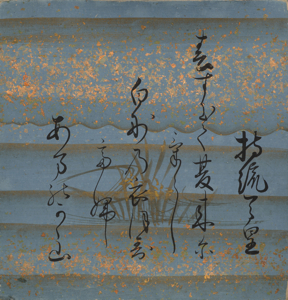 持統天皇
春すきて夏来尓
けらし
白妙乃衣ほす
てふ
あまのかく山